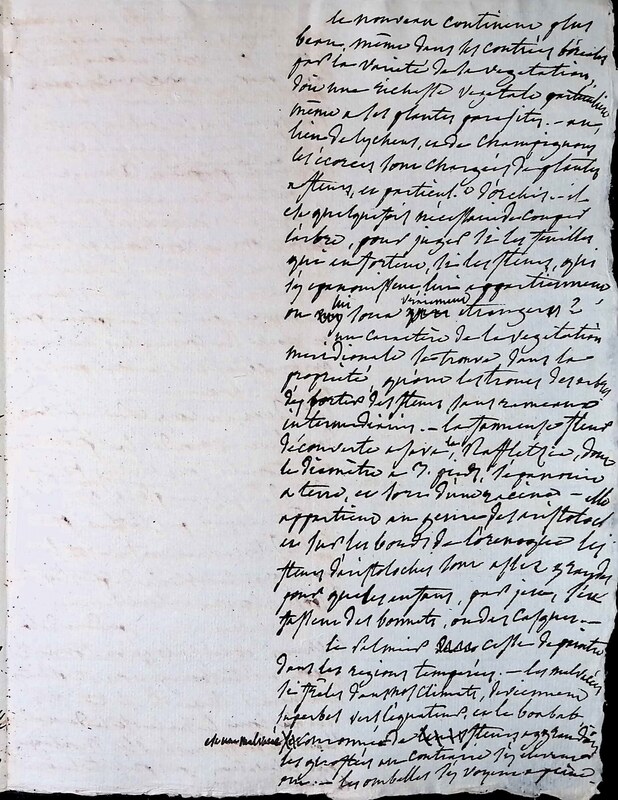 le nouveau continent plus
beau, même dans les contrées boréales
par la variété de la vegetation,
doit une richesse vegetale particulière
même a ses plantes parasites. - au
lieu de lychens, et de champignons
les écorces sont chargées de plantes
a fleurs, et particul. d'orchis. - il
est quelquefois nécessaire de couper
l'arbre, pour juger si les feuilles
qui en sortent, si les fleurs, qui
s'y epanouissent, lui appartiennent
ou lui sont vraiment etrangers?
un caractère de la vegetation
meridionale se trouve dans la
propriété, qu'ont les troncs des arbres
de porter des fleurs sans rameaux
intermediaires. - la fameuse fleur
découverte a Java, le Rafflesia, dont
le diamètre a 3. pieds, s'epanouit
a terre, et sort d'une racine - elle
appartient au genre des aristoloch
et sur les bords de l'orenoque les
fleurs d'aristoloches sont assez grandes
pour que les enfans, par jeux, s'en
fassent des bonnets, ou des casques. -
le palmier cesse de paroitre
dans les regions temperées. - les malvacées
si frêles dans nos climats, deviennent
superbes vers l'equateur, et le boabab
est une malvacée couronnée de fleurs
les
au contraire s'y
les ombelles s'y voyent a peine